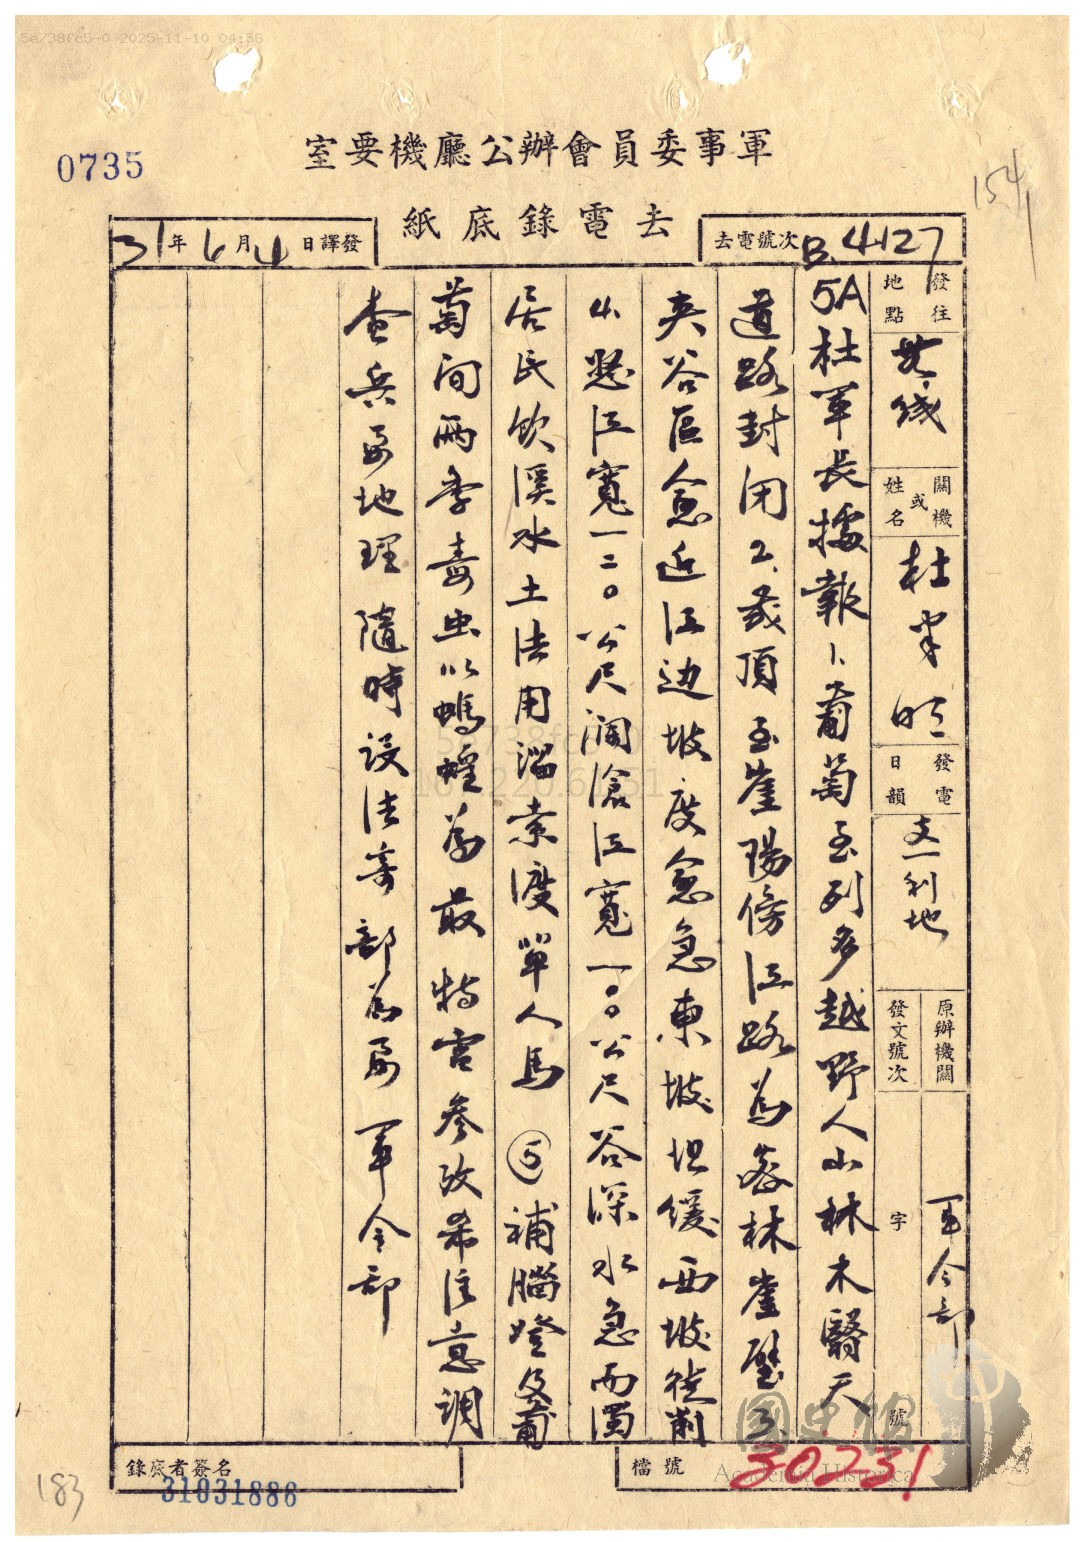 5e738fe5-0 2025-11-10 04:56
0735
軍事委員會辦公廳機要室
去電錄底紙
154
去電號次 B.4127
31年6月4日譯發
發往地點
機關或姓名
杜聿明
發電日韻
支一利地
原辦機關
軍令部
發文號次
字
號
5A杜軍長據報1、葡萄至列多越野人山林木翳天
道路封閉2、茂頂至崖陽傍江路為密林崖壁3、
夾谷區愈近江边坡度愈急東坡坦緩西坡徒削
4、怒江寬一二〇公尺瀾滄江寬一〇〇公尺谷深水急而濁
居民飲溪水土法用溜索渡單人馬 ⑤補腦燈及葡
萄间雨季毒虫以螞蝗為最特害參攷希注意調
查兵要地理隨時設法寄部為要 軍令部
錄底者簽名
31031886
檔號
30231
183
國史館
Academia Historica